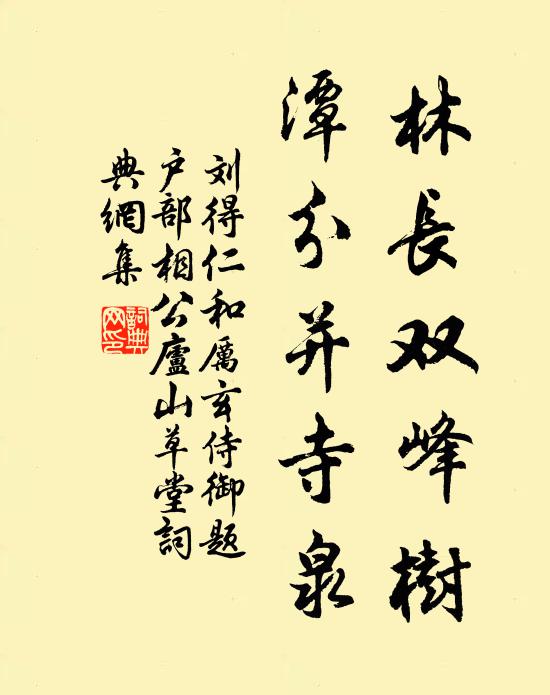 林長双峰樹
潭分并寺泉
刘得仁和厲玄侍御题
户部相公廬山草堂詞
典網集
詞典
网印